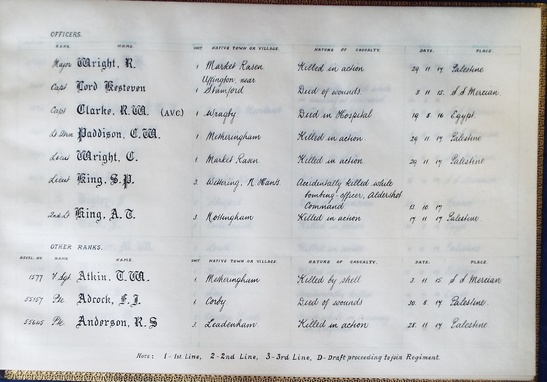 OFFICERS.
RANK. NAME. UNIT NATIVE TOWN OR VILLAGE. NATURE OF CASUALTY. DATE. PLACE.
Major Wright, R. 1 Market Rasen Killed in action 29 11 17 Palestine
Uffington, near
Capt Lord Kesteven 1 Stamford Died of wounds 5 11 15 S S Mercian
Capt Clarke, R.W. (AVC) 1 Wragby Died in Hospital 19 8 16 Egypt
Paddison, C.W. 1 Metheringham Killed in action 29 11 17 Palestine
Lieut Wright, C. 1 Market Rasen Killed in action 29 11 17 Palestine
Lieut King, S.P. 3 Accidentally killed while
bombing-officer, Aldershot
Command 13 10 17
2nd Lt King, A.T. 3 Nottingham Killed in action 17 11 17 Palestine
OTHER RANKS.
REGTL. NO RANK NAME. UNIT NATIVE TOWN OR VILLAGE. NATURE OF CASUALTY. DATE. PLACE.
1577 Sgt Atkin, T.W. 1 Metheringham Killed by shell 3 11 15 S S Mercian
55157 Pte Adcock, F.J. 1 Corby Died of wounds 30 8 17 Palestine
55645 Pte Anderson, R.S 3 Leadenham Killed in action 28 11 17 Palestine
Note: 1-1st Line, 2-2nd Line, 3-3rd Line, D-Draft proceeding to join Regiment.